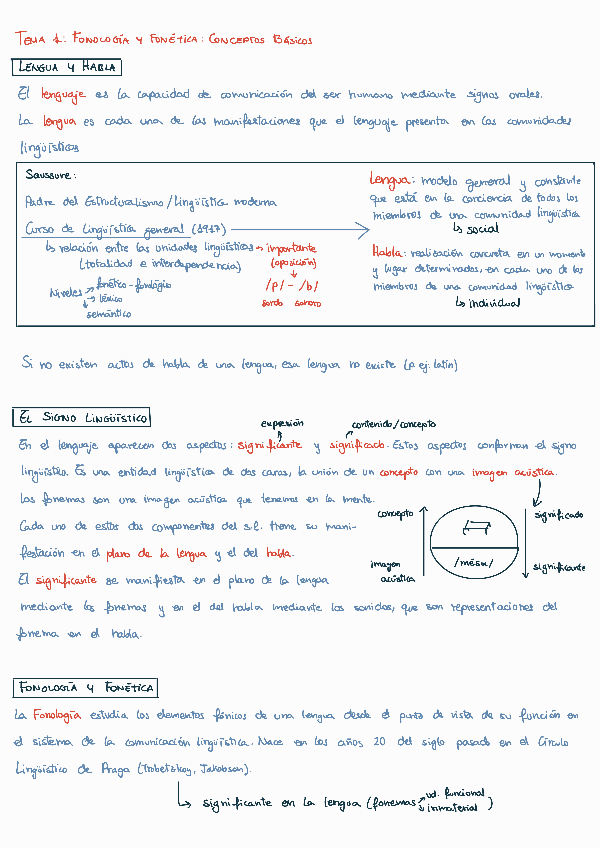 TEMA 1: FONOLOGÍA Y FONÉTICA: CONCEPTOS BÁSICOS
LENGUA Y HABLA
El lenguaje es la capacidad de comunicación del ser humano mediante signos orales.
La lengua es cada una de las manifestaciones que el lenguaje presenta en las comunidades
lingüísticas
Saussure:
Padre del Estructuralismo/Lingüística moderna
Curso de Lingüística general (1917)
↳ relación entre las unidades lingüísticas → importante
(totalidad e interdependencia)
(oposición)
Niveles
fonético-fonológico
léxico
semántico
/p/ - /b/
sordo sonoro
Lengua: modelo general y constante
que está en la conciencia de todos los
miembros de una comunidad lingüística
↳ social
Habla: realización concreta en un momento
y lugar determinados, en cada uno de los
miembros de una comunidad lingüística
↳ individual
Si no existen actos de habla de una lengua, esa lengua no existe (p.ej: latín)
EL SIGNO LINGÜÍSTICO
expresión
contenido/concepto
En el lenguaje aparecen dos aspectos: significante y significado. Estos aspectos conforman el signo
lingüístico. Es una entidad lingüística de dos caras, la unión de un concepto con una imagen acústica.
Los fonemas son una imagen acústica que tenemos en la mente.
Cada uno de estos dos componentes del s.l. tiene su mani-
festación en el plano de la lengua y el del habla.
El significante se manifiesta en el plano de la lengua
mediante los fonemas y en el del habla mediante los sonidos, que son representaciones del
fonema en el habla.
concepto
imagen
acústica
/mésa/
significado
significante
FONOLOGÍA Y FONÉTICA
La Fonología estudia los elementos fónicos de una lengua desde el punto de vista de su función en
el sistema de la comunicación lingüística. Nace en los años 20 del siglo pasado en el Círculo
Lingüístico de Praga (Trobetzkoy, Jakobson).
↳ significante en la lengua (fonemas
ud. funcional
inmaterial )